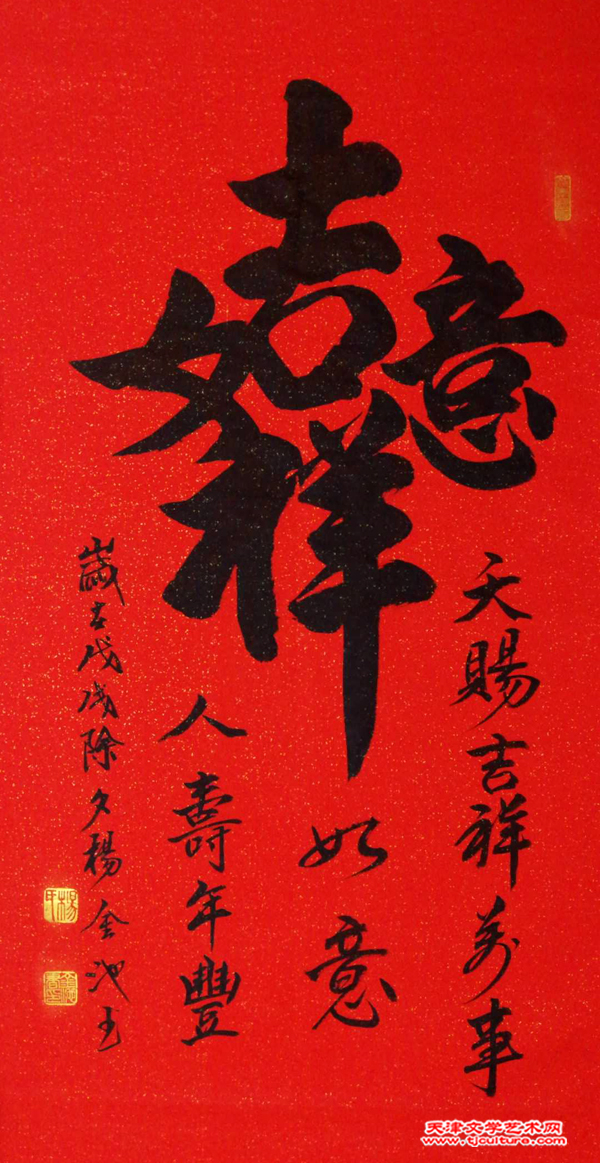 吉祥如意
天賜吉祥萬事
如意
人壽年豐
歲在戊戌除夕楊金池書
天津文学艺术网
www.tjculture.com